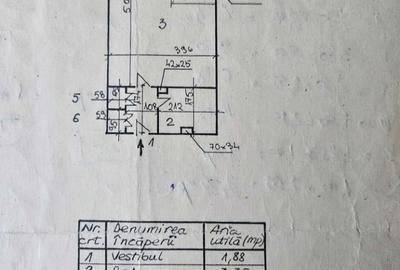 3
396
42x25
5
58
174
175
108
212
6
59
95
2
1
70x34
Nr. crt.
Denumirea încăperii
Aria utilă (mp)
1 Vestibul 1,88